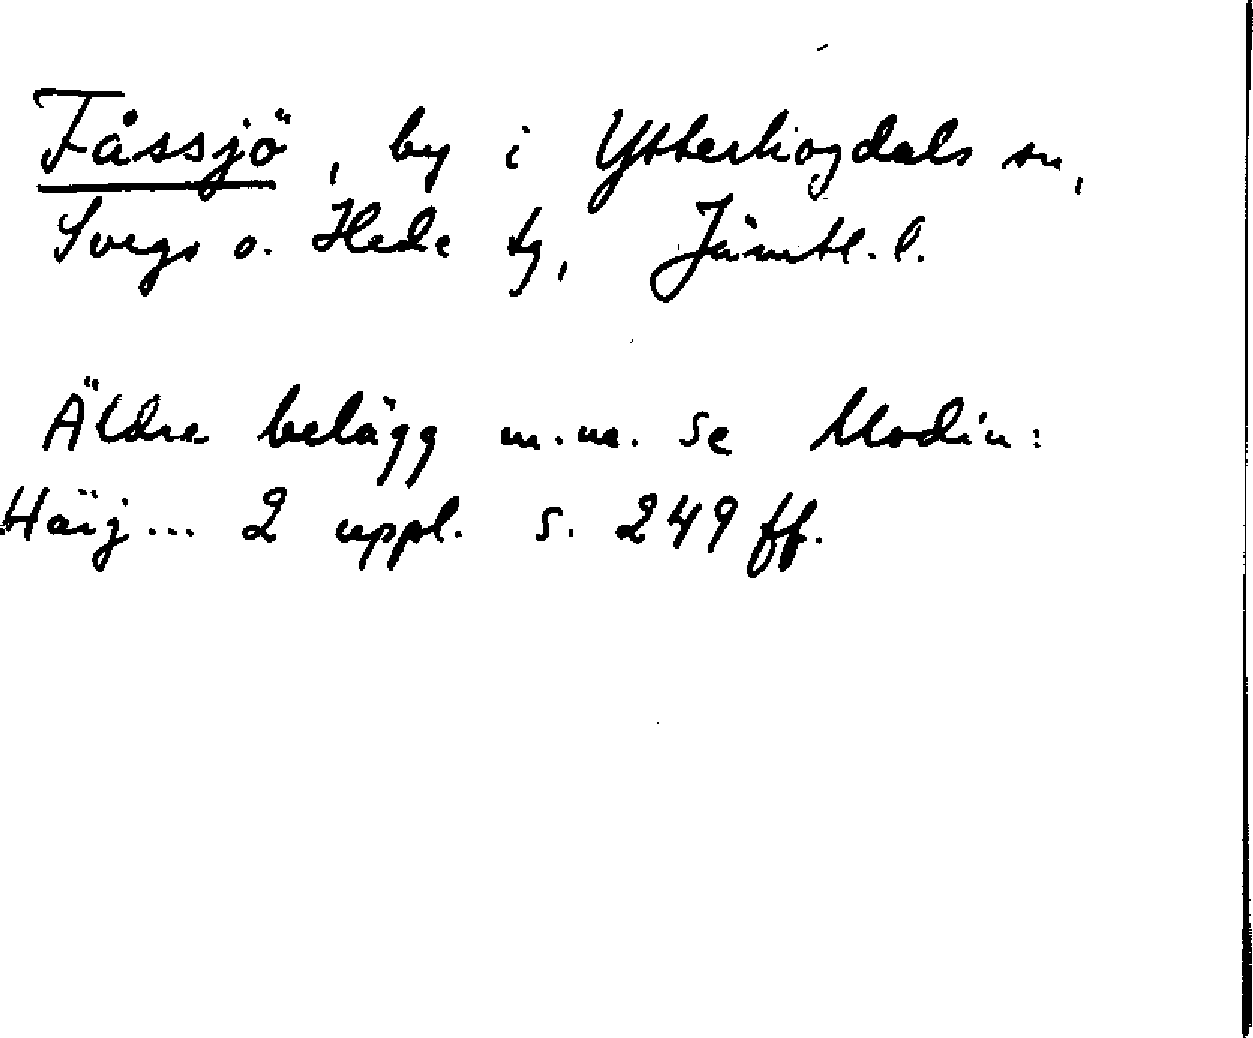 Fåssjö, by i Ytterhogdals sn,
Svegs o. Hede tg, Jämtl. l.
Äldre belägg m.m. se Modin:
Härj... 2 uppl. s. 249 ff.